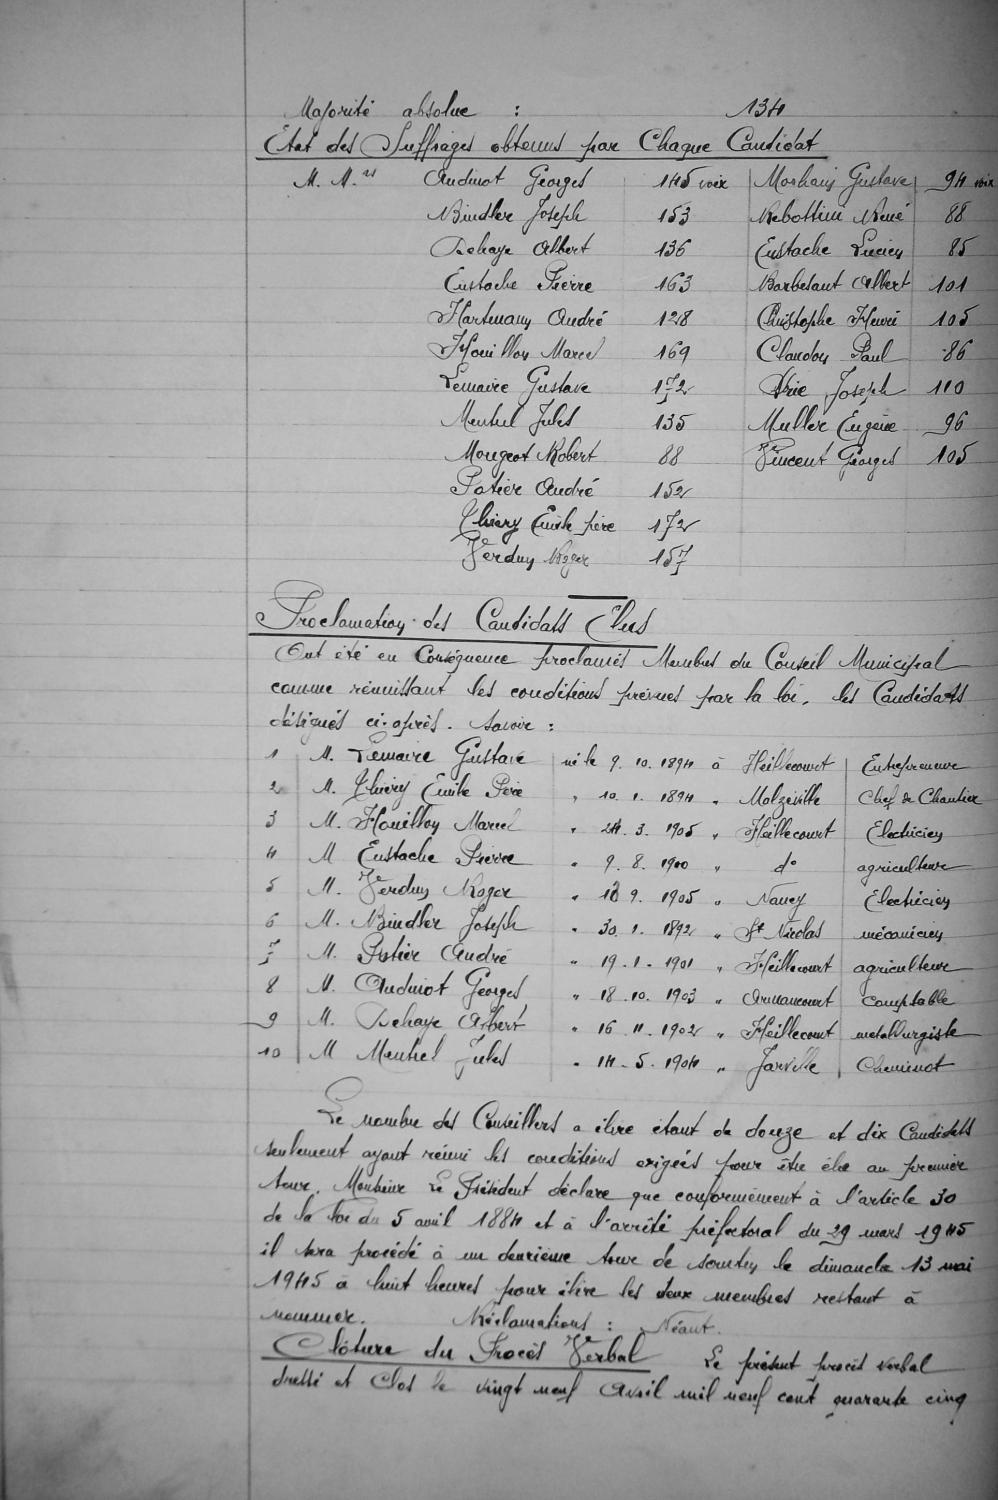 Majorité absolue : 134
Etat des Suffrages obtenus par Chaque Candidat
M. M.rs Audinot Georges 145 voix Morhain Gustave 94 voix
Bindler Joseph 153 Rebottini René 88
Dehaye Albert 136 Eustache Lucien 85
Eustache Pierre 163 Barbesant Albert 101
Hartmann André 128 Christophe Henri 105
Houillon Marcel 169 Claudon Paul 86
Lemaire Gustave 172 Joseph 110
Menhel Jules 135 Muller Eugène 96
Mougeot Robert 88 Vincent Georges 105
Potier André 152
Thiéry Emile père 172
Verdun Roger 157
Proclamation des Candidats Elus
Ont été en Conséquence proclamés Membres du Conseil Municipal
comme réunissant les conditions prévues par la loi, les Candidats
désignés ci-après. Savoir :
1 M. Lemaire Gustave né le 9. 10. 1894 à Heillecourt Entrepreneur
2 M. Thiéry Emile Père " 10. 1. 1894 " Malzéville Chef de Chantier
3 M. Houillon Marcel " 24. 3. 1905 " Heillecourt Electricien
4 M Eustache Pierre " 9. 8. 1900 " do agriculteur
5 M. Verdun Roger " 9. 1905 " Nancy Electricien
6 M. Bindler Joseph " 30. 1. 1892 " St Nicolas mécanicien
7 M. Potier André " 19. 1. 1901 " Heillecourt agriculteur
8 M. Audinot Georges " 18. 10. 1903 " Armaucourt comptable
9 M. Dehaye Albert " 16 11. 1902 " Heillecourt metallurgiste
10 M Menhel Jules " 14. 5. 1904 " Jarville Cheminot
Le nombre des Conseillers a élire étant de douze et dix Candidats
seulement ayant réuni les conditions exigées pour être élu au premier
tour, Monsieur Le Président déclare que conformément à l'article 30
de la loi du 5 avril 1884 et à l'arrêté préfectoral du 29 mars 1945
il sera procédé à un deuxième tour de scrutin le dimanche 13 mai
1945 à huit heures pour élire les deux membres restant à
nommer. Réclamations : Néant.
Clôture du Procès Verbal Le présent procès verbal
dressé et Clos le vingt neuf Avril mil neuf cent quarante cinq